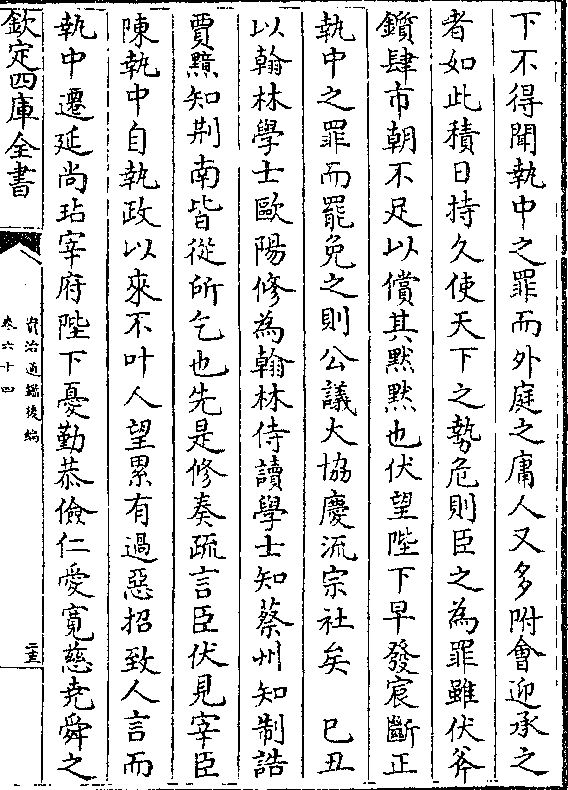 下不得聞執中之罪而外庭之庸人又多附會迎承之
者如此積日持久使天下之勢危則臣之為罪雖伏斧
鑕肆市朝不足以償其黙黙也伏望陛下早發宸斷正
執中之罪而罷免之則公議大協慶流宗社矣　已丑
以翰林學士歐陽修為翰林侍讀學士知蔡州知制誥
賈黯知荆南皆從所乞也先是修奏疏言臣伏見宰臣
陳執中自執政以來不叶人望累有過惡招致人言而
執中遷延尚玷宰府陛下憂勤恭儉仁愛寛慈堯舜之
欽定四庫全書
資治通鑑後編
卷六十四
二十五